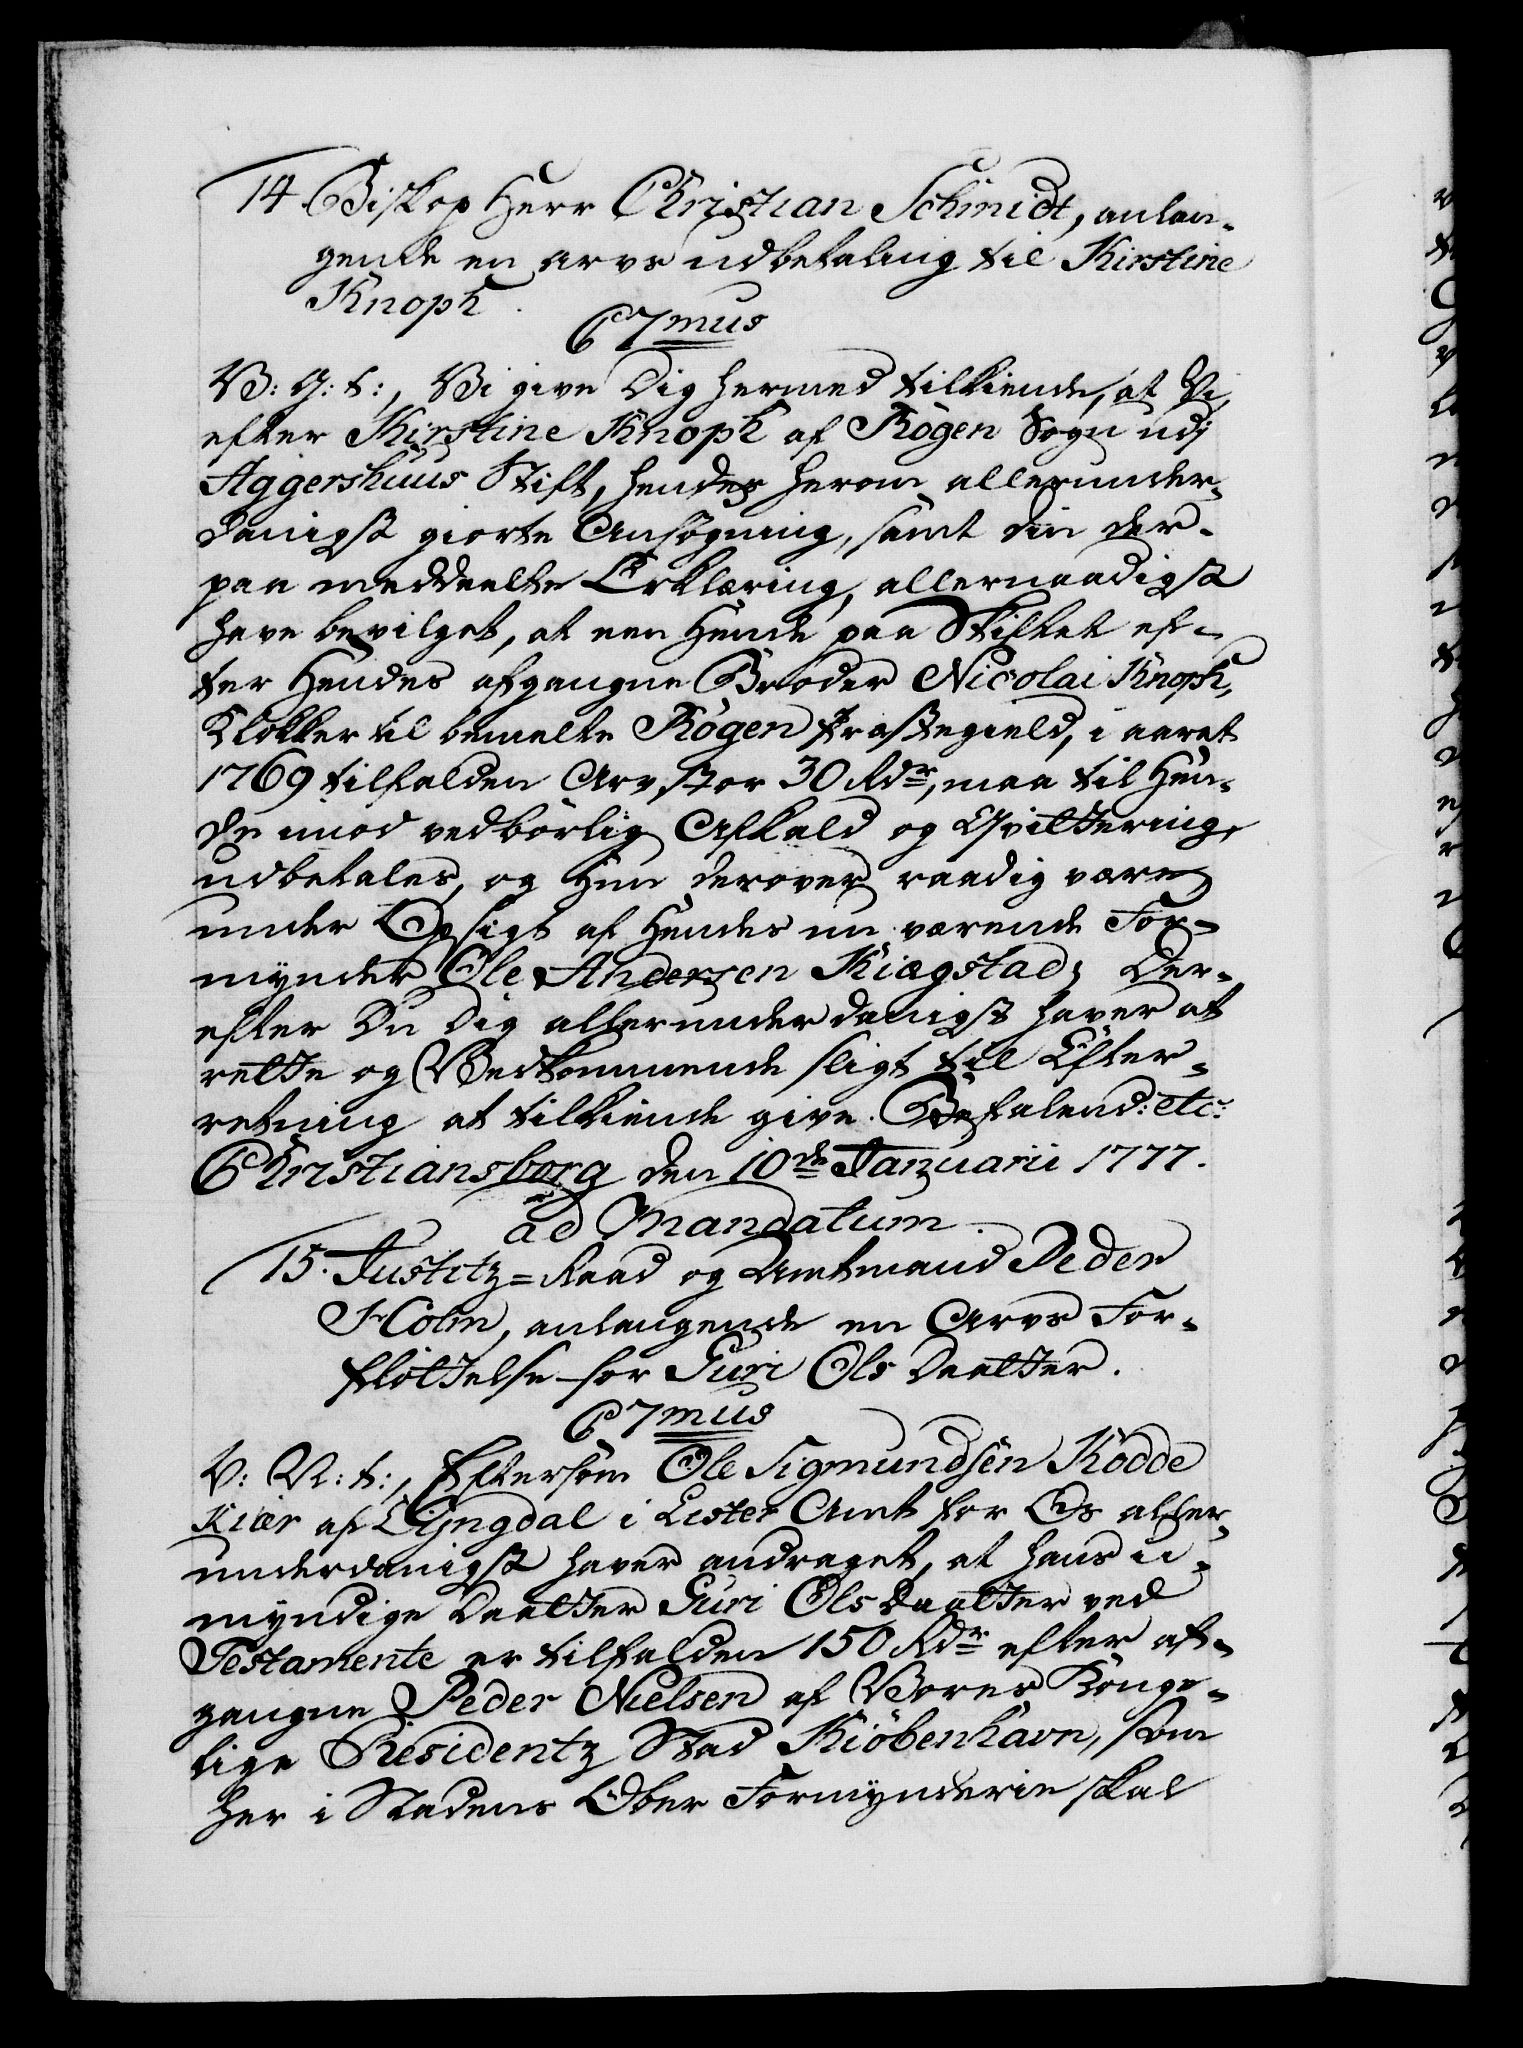 14. Biskop Herr Christian Schmidt, anlan-
gende en arvs udbetaling til Kirstine
Knoph.
C7mus
V: G: t:, Vi give Dig hermed tilkiende, at Vi,
efter Kirstine Knoph af Rögen Sogn udj
Aggershuus Stift, hendes herom allerunder-
danigst giorte Ansögning, samt din der-
paa meddeelte Erklæring, allernaadigst
have bevilget, at een Hende paa Skiftet ef-
ter Hendes afgangne Broder Nicolai Knoph,
Klokker til bemelte Rögen Præstegield, i aaret
1769 tilfalden Arv, stor 30 Rdr, maa til Hen-
de imod vedbörlig Afkald og Qvittering,
udbetales, og Hun derover raadig være
under Opsigt af Hendes nu værende For-
mynder Ole Andersen Kiægstad; Der-
efter Du Dig allerunderdanigst haver at
rette og Vedkommende sligt til Efter-
retning at tilkiende give. Befalend: etc:
Christiansborg den 10de Januarii 1777.
ad Mandatum
15. Justitz=Raad og Amtmand Peder
Holm, anlangende en Arvs For-
flöttelse for Guri Ols Daatter.
C7mus
V: G: t:, Eftersom Ole Sigmundsen Rödde
Kiær af Lÿngdal i Lister Amt for Os aller-
underdanigst haver andraget, at hans u-
myndige Daatter Guri Ols Daatter ved
Testamente er tilfalden 150 Rdr efter af-
gangne Peder Nielsen af Vores Konge-
lige Residentz Stad Kiöbenhavn, som
her i Stadens Ober Formynderie skal